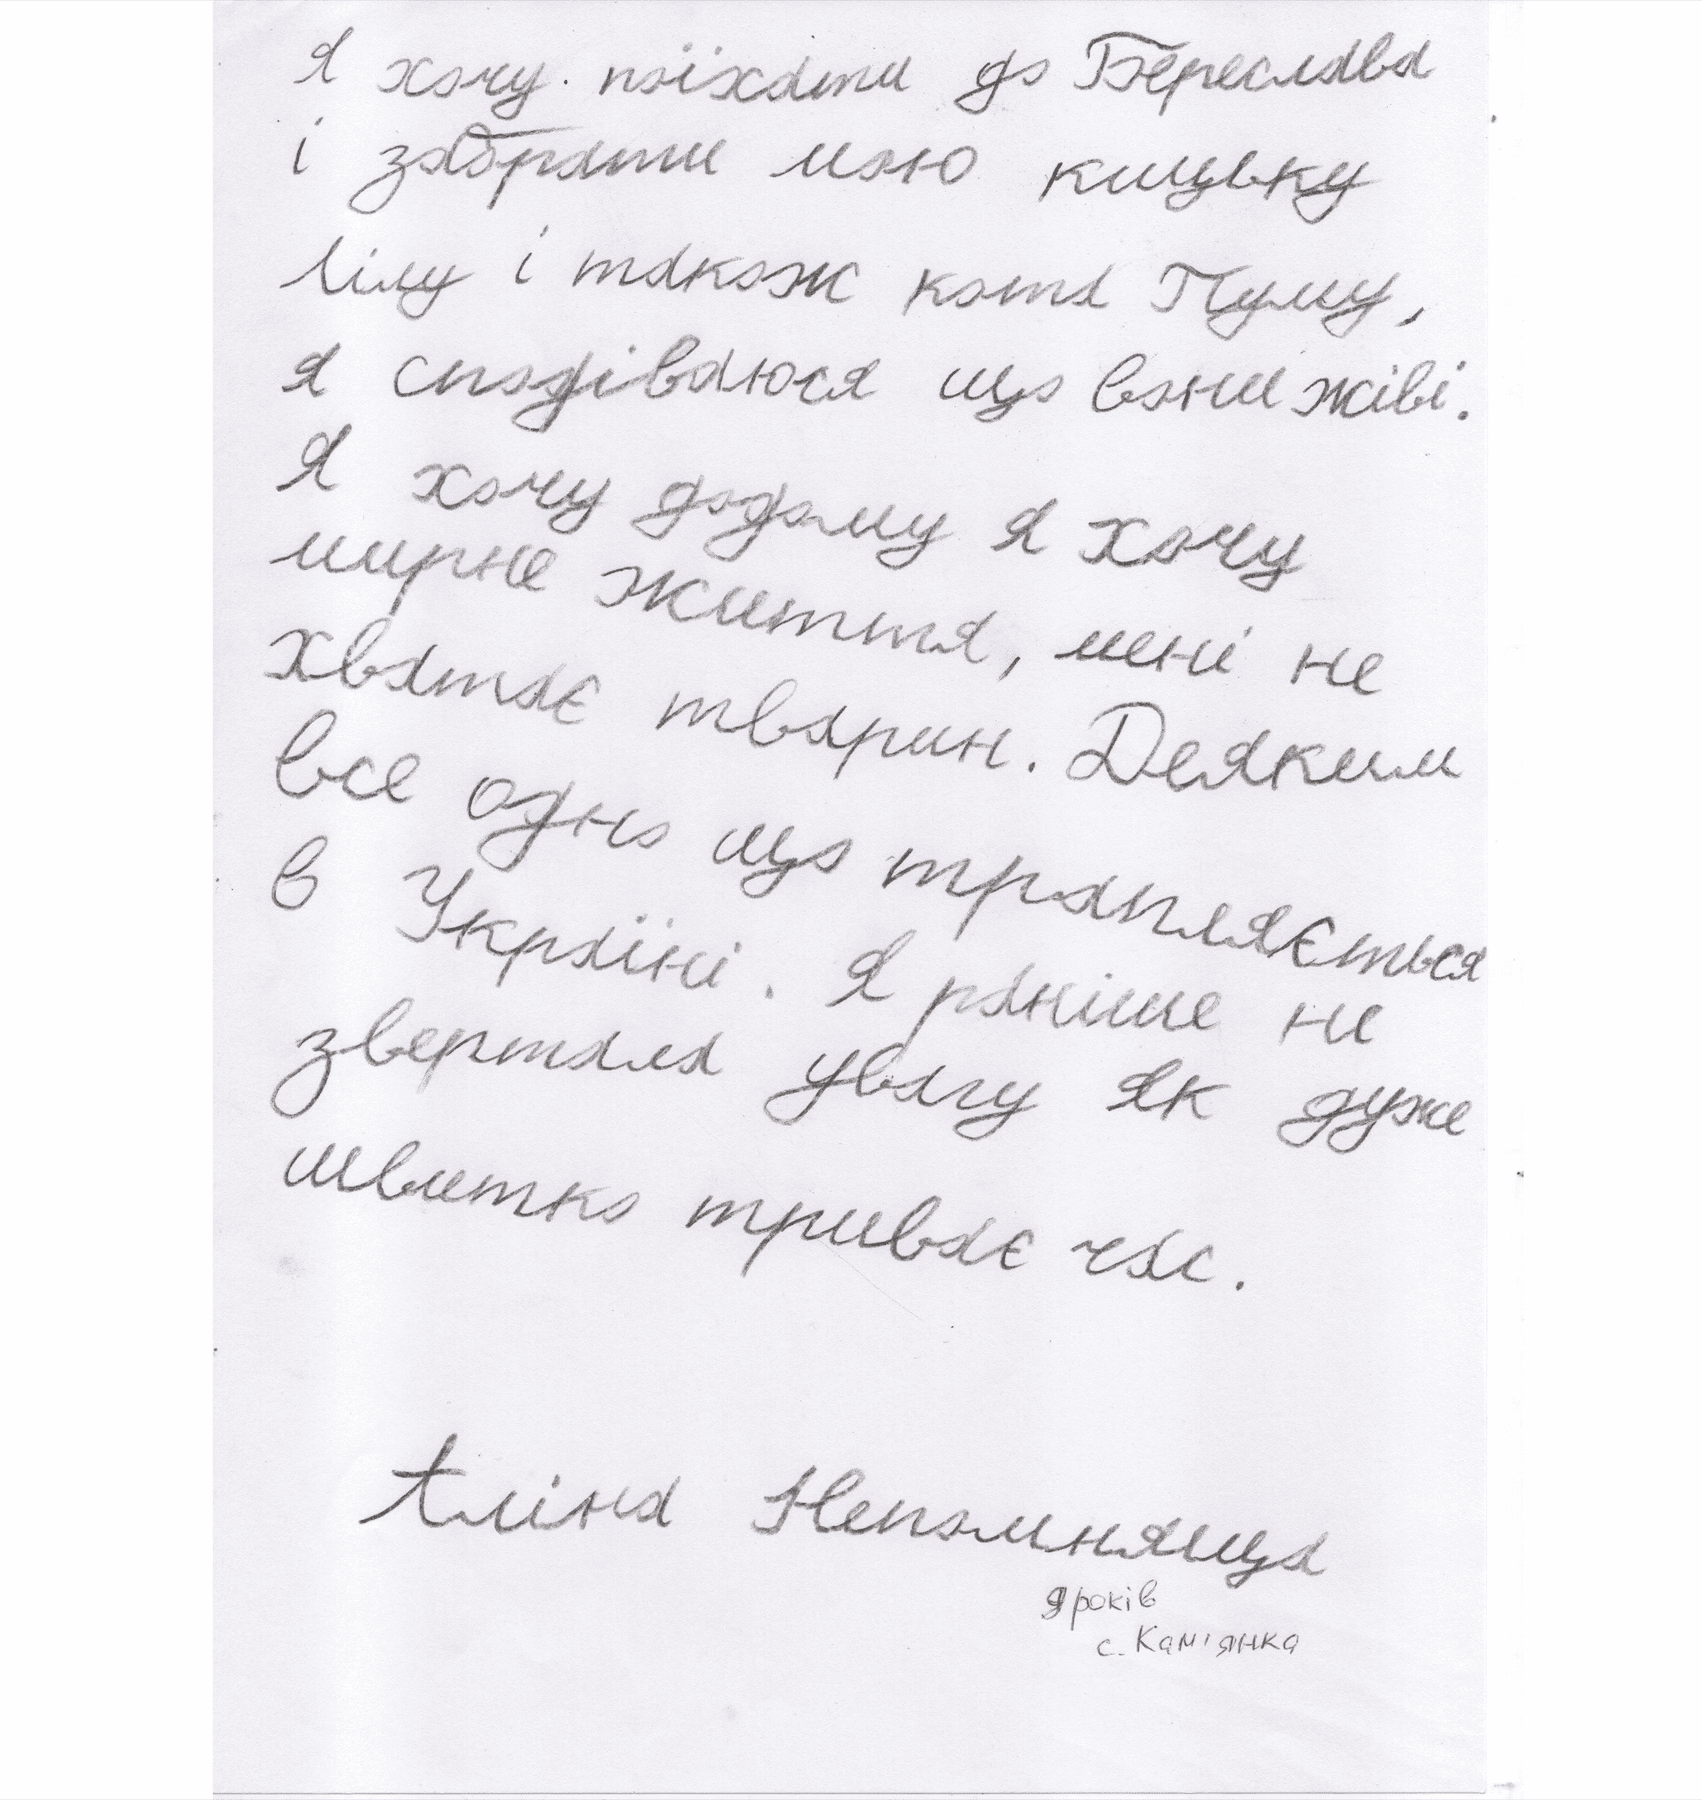 Я хочу поїхати до Береслава
і забрати мою кицьку
Лілу і також кота Пуму,
я сподіваюся що вони жіві.
Я хочу додому я хочу
мирне життя, мені не
хватає тварин. Деяким
все одно що трапляється
в Україні. Я раніше не
звертала увагу як дуже
швитко триває час.
Аліна Непомняща
9 років
с. Кам'янка